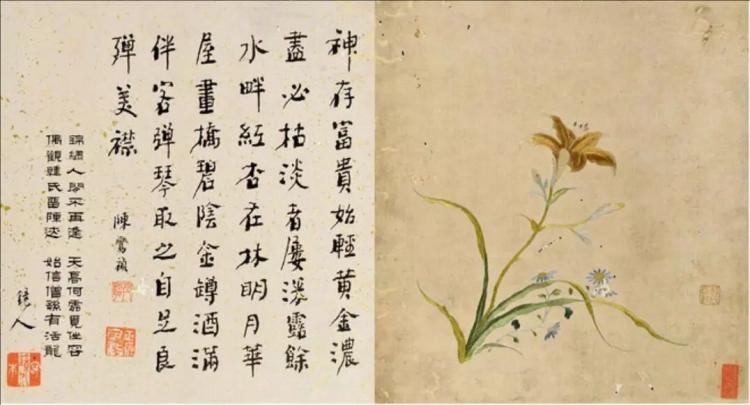 神存富貴始輕黃金濃
盡必枯淡者屢深露餘
水畔紅杏在林明月華
屋畫橋碧陰金罇酒滿
伴客彈琴取之自足良
殫美襟
陳
人間不再逢 天高何處覓仙容
偶觀氏留陳迹 始信僧繇有活龍
人